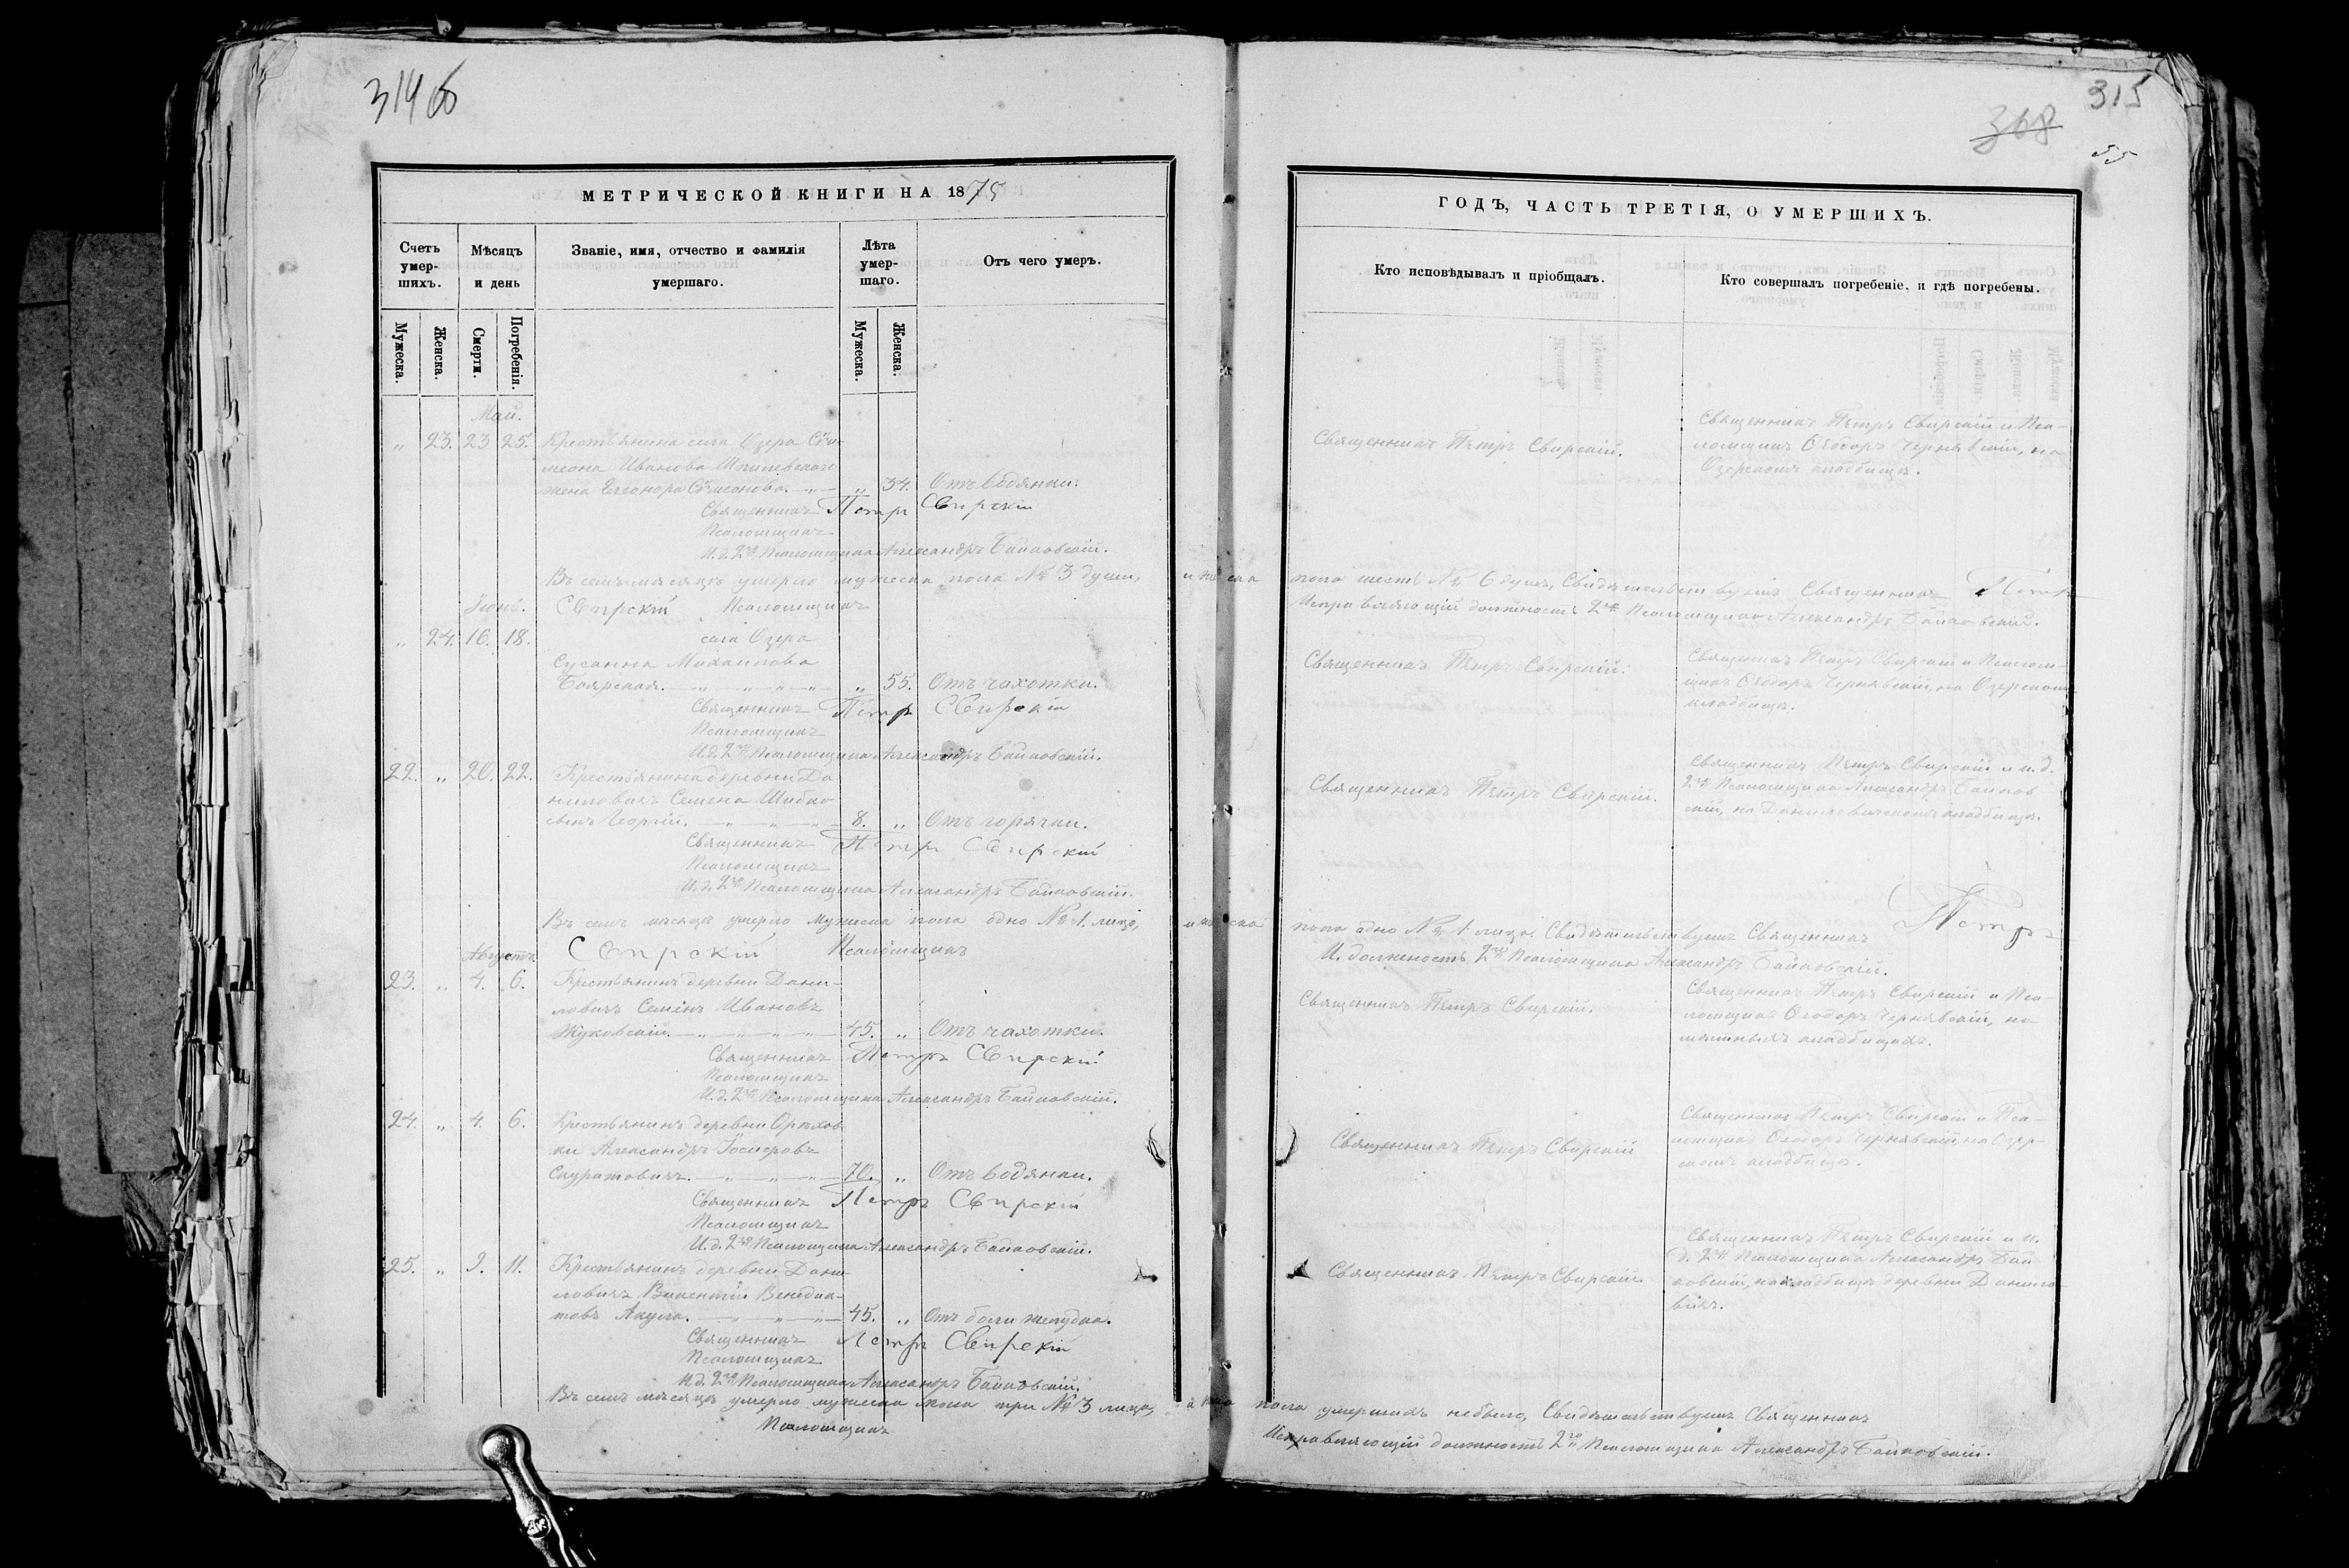 314 об
МЕТРИЧЕСКОЙ КНИГИ НА 1875
Счетъ умер-
шихъ.
Мѣсяцъ
и день
Званіе, имя, отчество и фамилія
умершаго.
Лѣта
умер-
шаго.
Отъ чего умеръ.
Мужеска.
Женска.
Смерти.
Погребенія.
Мужеска.
Женска.
Май.
„ 23. 23 25. Крестьянина села Озера Сѵ-
меона Иванова Шпилевскаго
жена Елеонора Сѵмеонова. „ 34. Отъ водянки.
Священникъ Петръ Свирскій
Псаломщикъ
И. д. 2го Псаломщика Александръ Байковскій.
Въ семъ мѣсяцѣ умерло мужеска пола № 3 души,
Іюнь. Свирскій Псаломщикъ
„ 24. 16. 18. села Озера
Сусанна Михаилова
Боярская. „ 55. Отъ чахотки.
Священникъ Петръ Свирскій
Псаломщикъ
И. д. 2го Псаломщика Александръ Байковскій.
22. „ 20. 22. Крестьянина деревни Да-
ниловичъ Семена Шибко
сынъ Георгій. 8. „ Отъ горячки.
Священникъ Петръ Свирскій
Псаломщикъ
И. д. 2го Псаломщика Александръ Байковскій.
Въ семъ мѣсяцѣ умерло мужеска пола одно № 1. лицо,
Августъ. Свирскій Псаломщикъ
23. „ 4. 6. Крестьянинъ деревни Дани-
ловичъ Семенъ Ивановъ
Жуковскій. 45. „ Отъ чахотки.
Священникъ Петръ Свирскій
Псаломщикъ
И. д. 2го Псаломщика Александръ Байковскій.
24. „ 4. 6. Крестьянинъ деревни Орѣхов-
ки Александръ Іосифовъ
Скуратовичъ. 70. „ Отъ водянки.
Священникъ Петръ Свирскій
Псаломщикъ
И. д. 2го Псаломщика Александръ Байковскій.
25. „ 9. 11. Крестьянинъ деревни Дани-
ловичъ Викентій Венедик-
товъ Акула. 45. „ Отъ боли желудка.
Священникъ Петръ Свирскій
Псаломщикъ
И. д. 2го Псаломщика Александръ Байковскій.
Въ семъ мѣсяцѣ умерло мужеска пола три № 3 лица,
Псаломщикъ
315
368
55
ГОДЪ, ЧАСТЬ ТРЕТІЯ, О УМЕРШИХЪ.
Кто исповѣдывалъ и пріобщалъ.
Кто совершалъ погребеніе, и гдѣ погребены.
Священникъ Петръ Свирскій.
Священникъ Петръ Свирскій и Пса-
ломщикъ Ѳеодоръ Чернявскій, на
Озерскомъ кладбищѣ.
пола шесть № 6 душъ, Свидѣтельствуетъ Священникъ Петръ
Исправляющій должность 2го Псаломщика Александръ Байковскій.
Священникъ Петръ Свирскій.
Священникъ Петръ Свирскій и Псалом-
щикъ Ѳеодоръ Чернявскій, на Озерскомъ
кладбищѣ.
Священникъ Петръ Свирскій.
Священникъ Петръ Свирскій и и. д.
2го Псаломщика Александръ Байков-
скій, на Даниловичскомъ кладбищѣ.
пола одно № 1 лицо. Свидѣтельствуетъ Священникъ Петръ
И. должность 2го Псаломщика Александръ Байковскій.
Священникъ Петръ Свирскій.
Священникъ Петръ Свирскій и Пса-
ломщикъ Ѳеодоръ Чернявскій, на
кладбищахъ.
Священникъ Петръ Свирскій
Священникъ Петръ Свирскій и Пса-
ломщикъ Ѳеодоръ Чернявскій на Озер-
скомъ кладбищѣ.
Священникъ Петръ Свирскій.
Священникъ Петръ Свирскій и и.
д. 2го Псаломщика Александръ Бай-
ковскій, на кладбищѣ деревни Данило-
вичъ.
пола умершихъ небыло, Свидѣтельствуетъ Священникъ
Исправляющій должность 2го Псаломщика Александръ Байковскій.